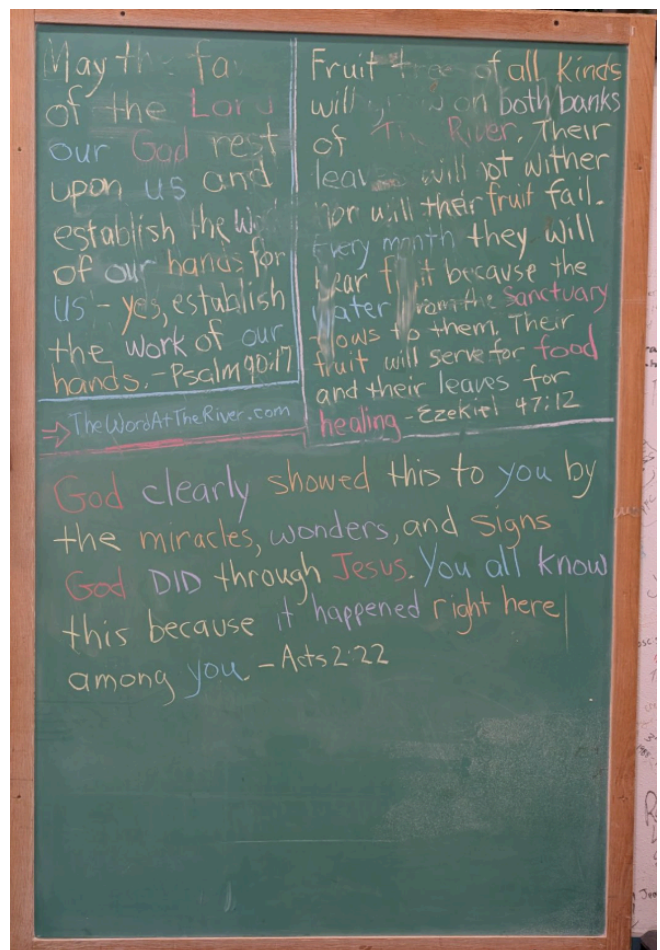 May the fa
of the Lord
our God rest
upon us and
establish the
of our hands for
us - yes, establish
the work of our
hands. - Psalm 90:17
→ TheWordAtTheRiver.com
Fruit tree of all Kinds
will grow on both banks
of The River. Their
leaves will not wither
nor will their fruit fail.
Every month they will
bear fruit because the
water from the Sanctuary
flows to them. Their
fruit will serve for food
and their leaves for
healing - Ezekiel 47:12
God clearly showed this to you by
the miracles, wonders, and signs
God DID through Jesus. You all know
this because it happened right here
among you. - Acts 2:22